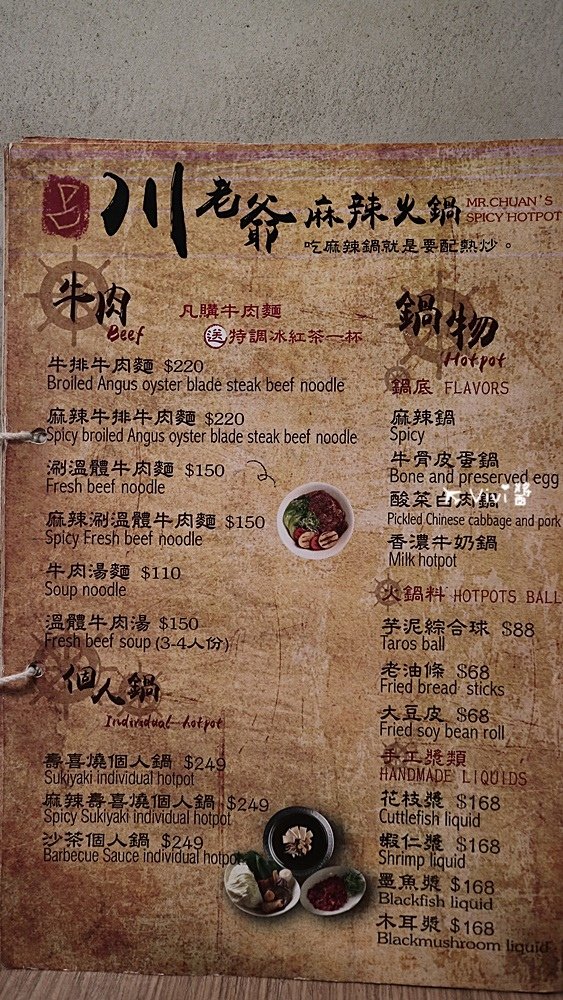 川老爺 麻辣火鍋 MR.CHUAN'S
SPICY HOTPOT
吃麻辣鍋就是要配熱炒。
牛肉
Beef
凡購牛肉麵
送特調冰紅茶一杯
牛排牛肉麵 $220
Broiled Angus oyster blade steak beef noodle
麻辣牛排牛肉麵 $220
Spicy broiled Angus oyster blade steak beef noodle
涮溫體牛肉麵 $150
Fresh beef noodle
麻辣涮溫體牛肉麵 $150
Spicy Fresh beef noodle
牛肉湯麵 $110
Soup noodle
溫體牛肉湯 $150
Fresh beef soup (3-4人份)
個人鍋
Individual hotpot
壽喜燒個人鍋 $249
Sukiyaki individual hotpot
麻辣壽喜燒個人鍋 $249
Spicy Sukiyaki individual hotpot
沙茶個人鍋 $249
Barbecue Sauce individual hotpot
鍋物
Hotpot
鍋底 FLAVORS
麻辣鍋
Spicy
牛骨皮蛋鍋
Bone and preserved egg
酸菜白肉鍋
Pickled Chinese cabbage and pork
香濃牛奶鍋
Milk hotpot
火鍋料 HOTPOTS BALL
芋泥綜合球 $88
Taros ball
老油條 $68
Fried bread sticks
大豆皮 $68
Fried soy bean roll
手工漿類
HANDMADE LIQUIDS
花枝漿 $168
Cuttlefish liquid
蝦仁漿 $168
Shrimp liquid
墨魚漿 $168
Blackfish liquid
木耳漿 $168
Blackmushroom liquid
vivi醬